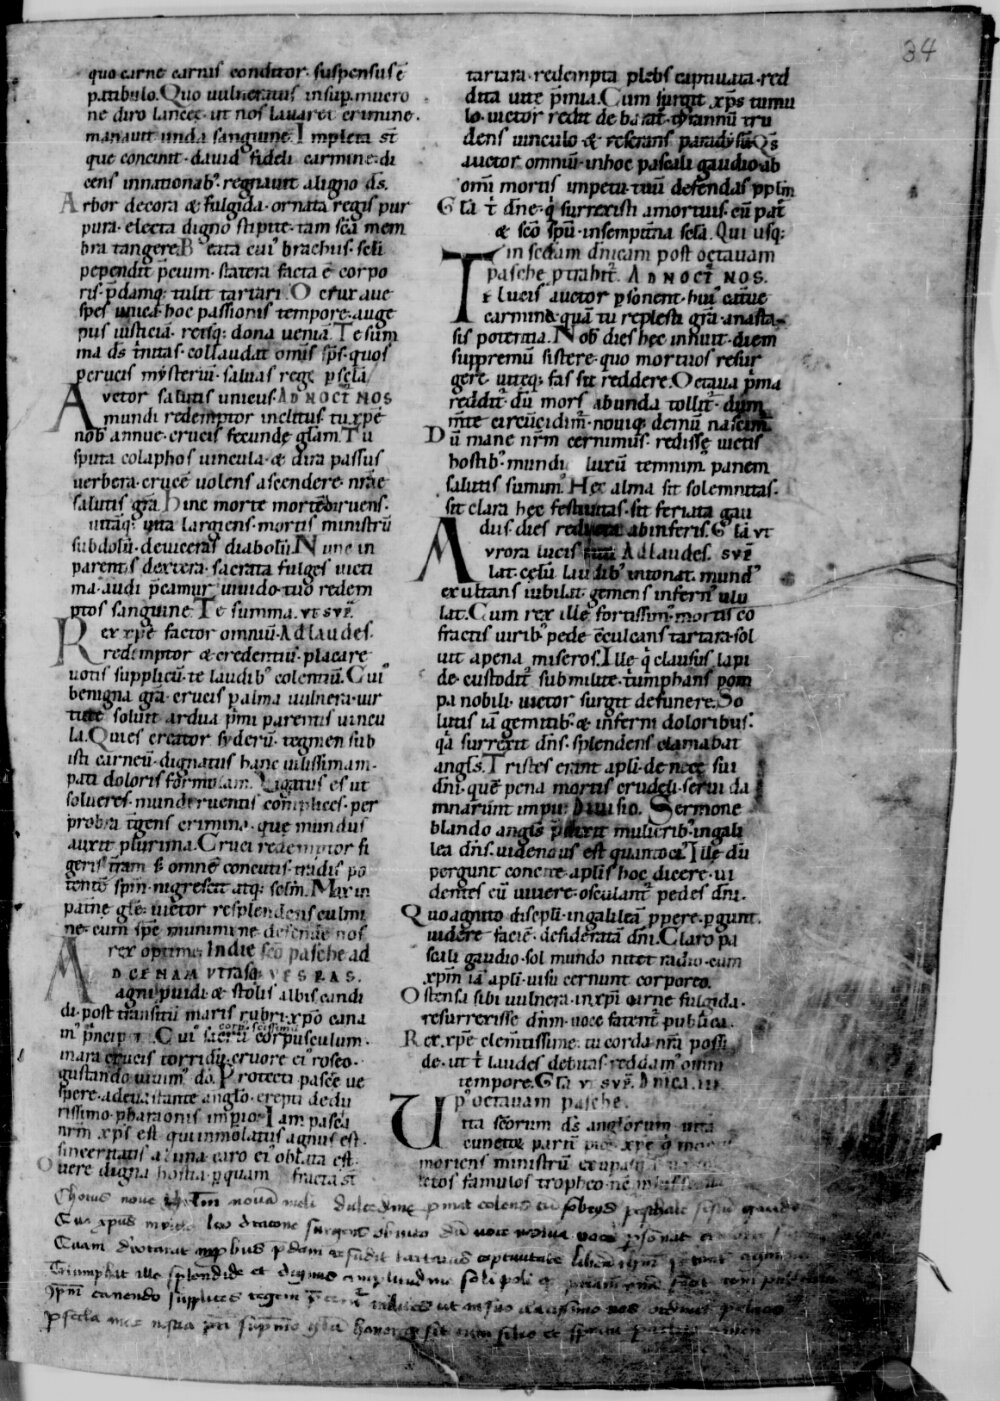 34
quo carne carnis conditor· suspensus ē
patibulo. Quo vulneratus insup. mucro
ne diro lanceę· ut nos lavaret crimine·
manavit unda sanguine. Impleta st̄
que concinit· david fideli carmine· di
cens innationab᷒· regnavit aligno ds̄.
Arbor decora & fulgida· ornata regis pur
pura· electa digno stipite· tam sc̄a mem
bra tangere. Beata cui᷒ brachiis· scli
pependit p̄cium· statera facta ē corpo
ris· p̄damq; tulit tartari. O crux ave
spes unica· hoc passionis tempore· auge
piis iusticiā· reisq; dona veniā. Te sūm
ma ds̄ t̄nitas· collaudat omis sps̄· quos
p crucis mysteriū· salvas rege p scl̄a
Auctor salutis unicus· AD NOCT̄ NOS
mundi redemptor inclitus· tu xp̄e
nob̄ annue· crucis fecunde gl̄am. Tu
sputa colaphos vincula· & dira passus
verbera· crucē volens ascendere· nr̄ae
salutis gr̄a. Hinc morte mortē diruens·
vitāq; vita largiens· mortis ministrū
subdolū· deviceras diabolū. Nunc in
parentis dextera· sacrata fulges victi
ma· audi p̄camur vivido· tuo redem
ptos sanguine. Te summa. vt svp̄.
Rex xp̄e factor omniū· Ad laudes·
redemptor & credentiū· placare
votis supplicū· te laudib᷒ colentiū. Cui᷒
benigna gr̄a· crucis p alma vulnera· vir
tute solvit ardua· p̄mi parentis vincu
la. Qui es creator syderū· tegmen sub
isti carneū· dignatus hanc vilissimam·
pati doloris formulam. Ligatus es ut
solveres· mundi ruentis complices· per
probra t̄gens crimina· que mundus
auxit plurima. Cruci redemptor fi
geris· t̄ram s; omnē concutis· tradis po
tentē spm̄· nigrescit atq; sclm̄. Mox in
pat̄ne gl̄e· victor resplendens culmi
ne· cum sp̄c munimine· defende nos
rex optime. Indie sc̄o pasche ad
AD CENAM VTRASQ; VESPAS.
agni pvidi· & stolis albis candi
di· post transitum maris rubri· xp̄o cana
m᷒ p̄ncipi. Cui᷒ sacrū corpusculum·
corp᷒ scissimū
in ara crucis torridū· cruore ei᷒ roseo·
gustando vivim᷒ dō. Protecti pasce ve
spere· a devastante anglo· erepti de du
rissimo· pharaonis impio. Iam pasca
nr̄m xp̄s est· qui inmolatus agnus est·
sinceritatis azima· caro ei᷒ oblata est.
O vere digna hostia· p quam fracta st̄
tartara· redempta plebs captivata· red
dita vite p̄mia. Cum surgit xp̄s tumu
lo· victor redit de barat̄· tyrannū tru
dens vinculo· & reserans paradysū. Qs̄
auctor omniū· inhoc pascali gaudio· ab
om̄i mortis impetu· tuū defendas pplm̄
Gl̄a t̄ dn̄e· q̇ surrexisti amortuis· cū pat̄
& sc̄o spū· insempit̄na scl̄a. Qui usq;
in scd̄am dn̄icam post octavam
pasche p trahit᷒. AD NOCT̄ NOS.
Te lucis auctor psonent· hui᷒ catve
carmina· quā tu replesti gr̄a· anasta
sis potentia. Nob̄ dies hęc innuit· diem
suppremū sistere· quo mortuos resur
gere· viteq; fas sit reddere. Octava p̄ma
reddit᷒· dū mors abunda tollit᷒· dum
m̄te circūcidim᷒· noviq; demū nascim᷒.
Dū mane nr̄m cernimus· redissę victis
hostib᷒· mundi luxū temnim᷒ panem
salutis sumim᷒. Hęc alma sit solemnitas·
sit clara hęc festivitas· sit feriata gau
dus dies reducta abinferis. Gl̄a vt
Avrora lucis Ad laudes. svp̄
lat· celū laudib᷒ intonat· mund᷒
exultans iubilat· gemens infern᷒ ulu
lat. Cum rex ille fortissim᷒· mortis co
fractis virib᷒· pede c̄culcans tartara· sol
vit apena miseros. Ille q̇ clausus lapi
de· custodit᷒ submilite· t̄umphans pom
pa nobili· victor surgit defunere. So
lutis iā gemitib᷒· & inferni doloribus᷒
q̇a surrexit dn̄s· splendens clamabat
angls̄. Tristes erant apl̄i· de nece sui
dn̄i· quē pena mortis crudeli· servi da
mnarunt impii· Divisio. Sermone
blando angls̄· p̄dixit mulierib᷒· in gali
lea dn̄s· videndus est quantoci᷒. Ille dū
pergunt concite· aplis hoc dicere· vi
dentes eū vivere· osculant᷒ pedes dn̄i.
Quo agnito discipli· ingalileā ppere· pgunt·
videre faciē· desideratā dn̄i. Claro pa
scali gaudio· sol mundo nitet radio· cum
xpm̄ iā apl̄i· visu cernunt corporeo.
Ostensa sibi vulnera· in xp̄i carne fulgida·
resurrexisse dn̄m· voce fatent᷒ publica.
Rex xp̄e clemtissime· tu corda nr̄a possi
de· ut t̄ laudes debitas· reddam᷒ omni
tempore. Gl̄a vt svp̄. Dn̄ica.iii.
p᷒ octavam pasche.
Vita sc̄orum ds̄ anglorum· vita
cunctoꝝ parit̄ xp̄e q̇
moriens ministrū
letos famulos tropheo· ne
Chorus nove novā meli dulcedine pmat colens cū sobriis paschale
Quo xpus invictus leo dracone surgens obruto dū voce viva psonat
Quam devorarat improbus p̄dam refudit tartarus captivitate libera
Triumphat ille splendide et dignus amplitudine soli poli
Ipm̄ canendo supplices regem
P secla mete nescia pri supmo gl̄ia honorq; sit cum filio et spiritu paclito amen